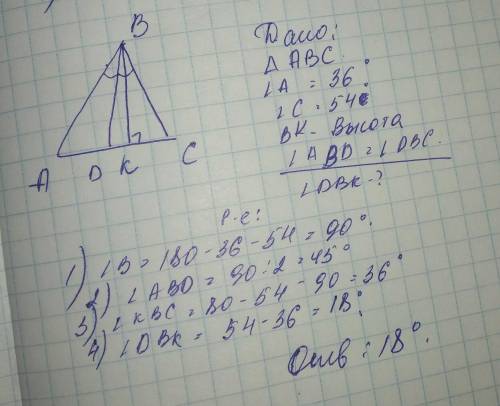 B
A D K C
Дано:
Δ ABC
∠A = 36°
∠C = 54°
BK - Высота
∠ABD = ∠DBC.
∠DBK - ?
Р-е:
1) ∠B = 180 - 36 - 54 = 90°
2) ∠ABD = 90 : 2 = 45°
3) ∠KBC = 80 - 54 - 90 = 36°
4) ∠DBK = 54 - 36 = 18°
Отв : 18°.